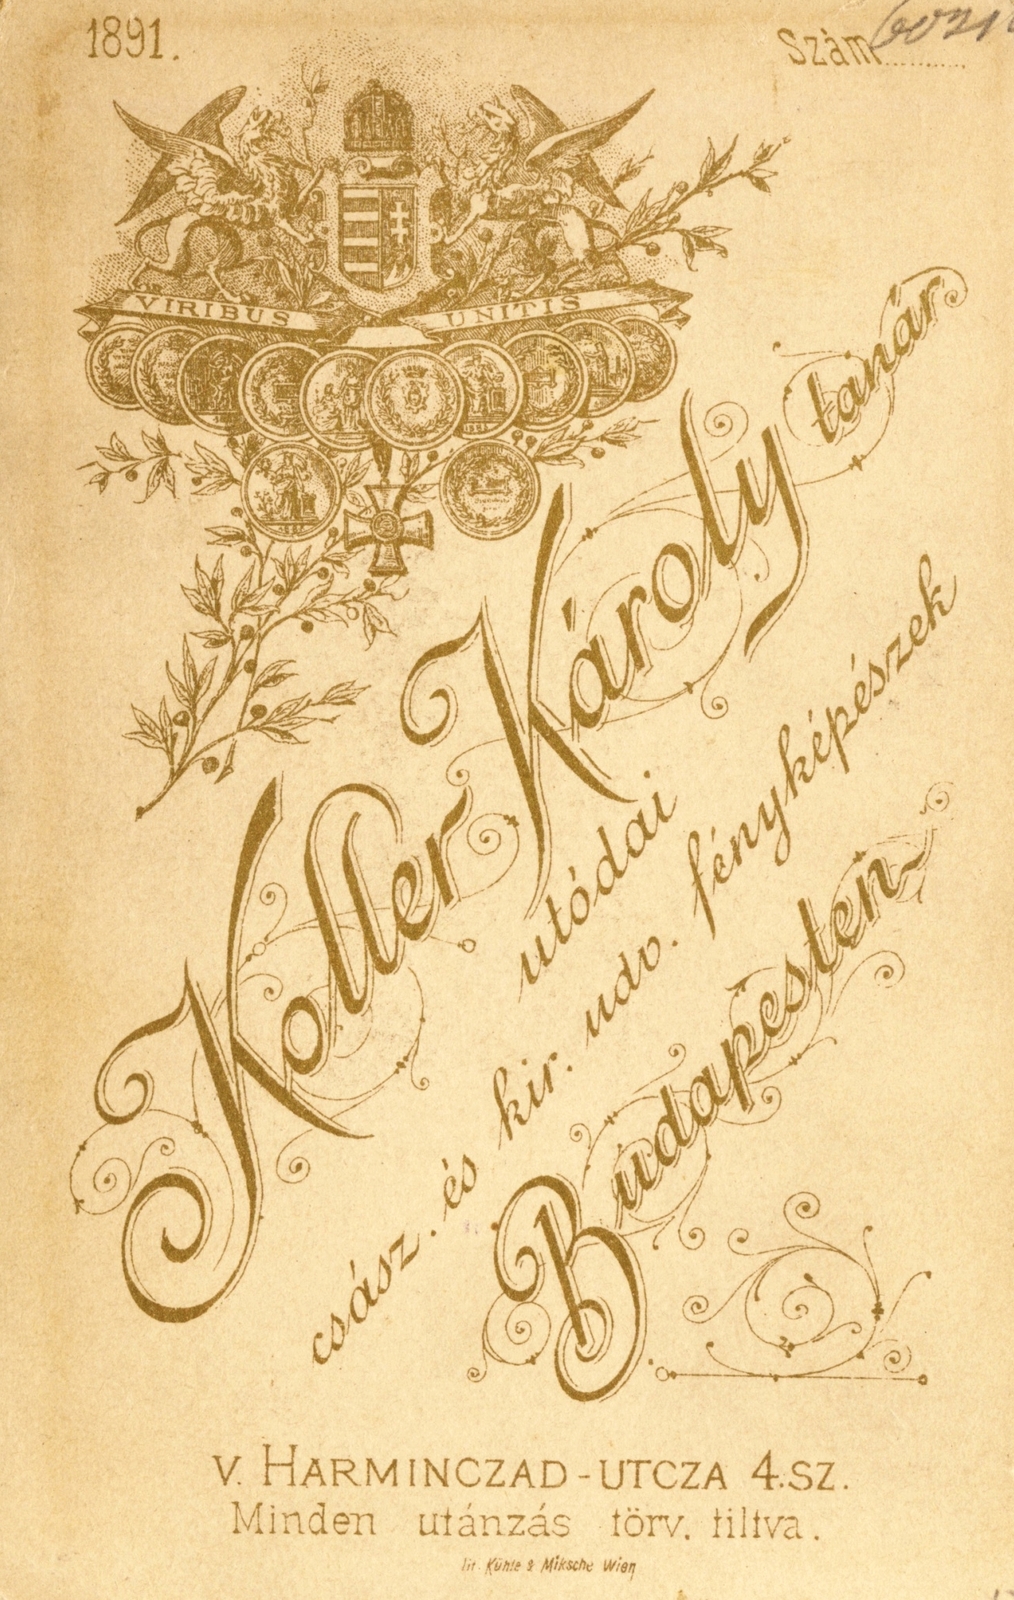 1891.
Szám
VIRIBUS UNITIS
Koller Károly tanár
utódai
csász. és kir. udv. fényképészek
Budapesten
V. HARMINCZAD-UTCZA 4.SZ.
Minden utánzás törv. tiltva.
lit. Kühle & Miksche Wien